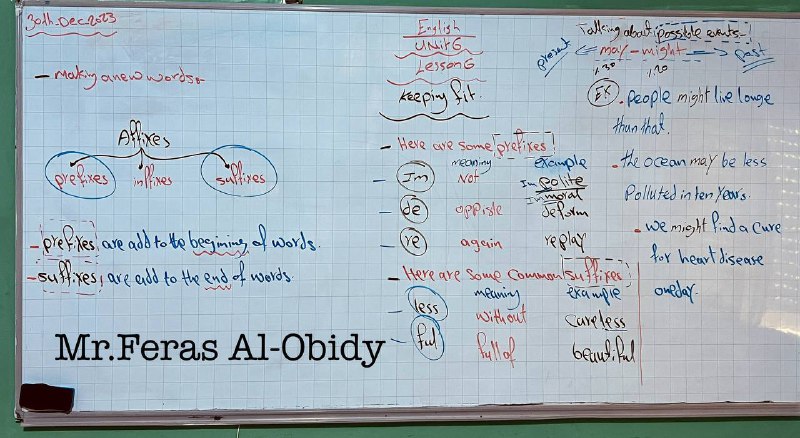 30th-Dec.2023
- Making a new words.
Affixes
prefixes inffixes suffixes
- prefixes, are add to the begining of words.
- suffixes, are add to the end of words.
Mr.Feras Al-Obidy
English
UNit 6
Lesson 6
Keeping fit.
- Here are some prefixes
meaning example
- Im Not Impolite
Immoral
- de oppiste deform
- re again replay
- Here are some Common suffixes
meaning example
- less without careless
- ful full of beautiful
Talking about possible events-
present may - might past
Ex . people might live longe
than that.
. the ocean may be less
Polluted in ten years.
. we might find a cure
for heart disease
one day.